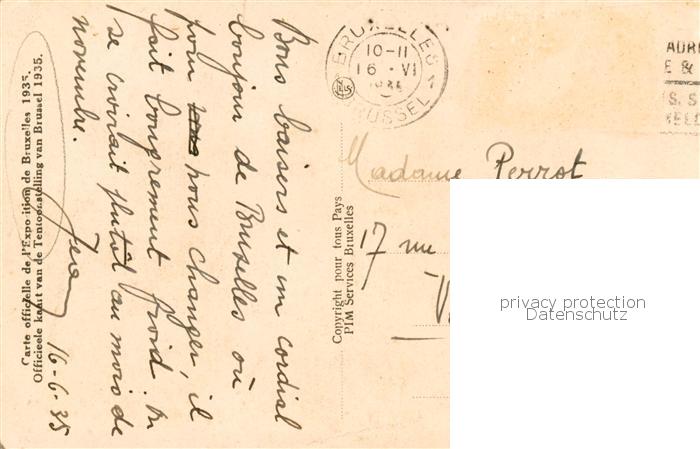 Bons baisers et un cordial
bonjour de Bruxelles où
pour nous changer, il
fait bougrement froid. On
se croirait plutôt au mois de
novembre.
Jean
16-6-35
Carte officielle de l'Exposition de Bruxelles 1935.
Officieele kaart van de Tentoonstelling van Brussel 1935.
Copyright pour tous Pays
PIM Services Bruxelles
BRUXELLES 1
10-11
16 VI
1935
BRUSSEL 1
ADR
E &
S. S
Madame Perrot
17 rue
V
privacy protection
Datenschutz